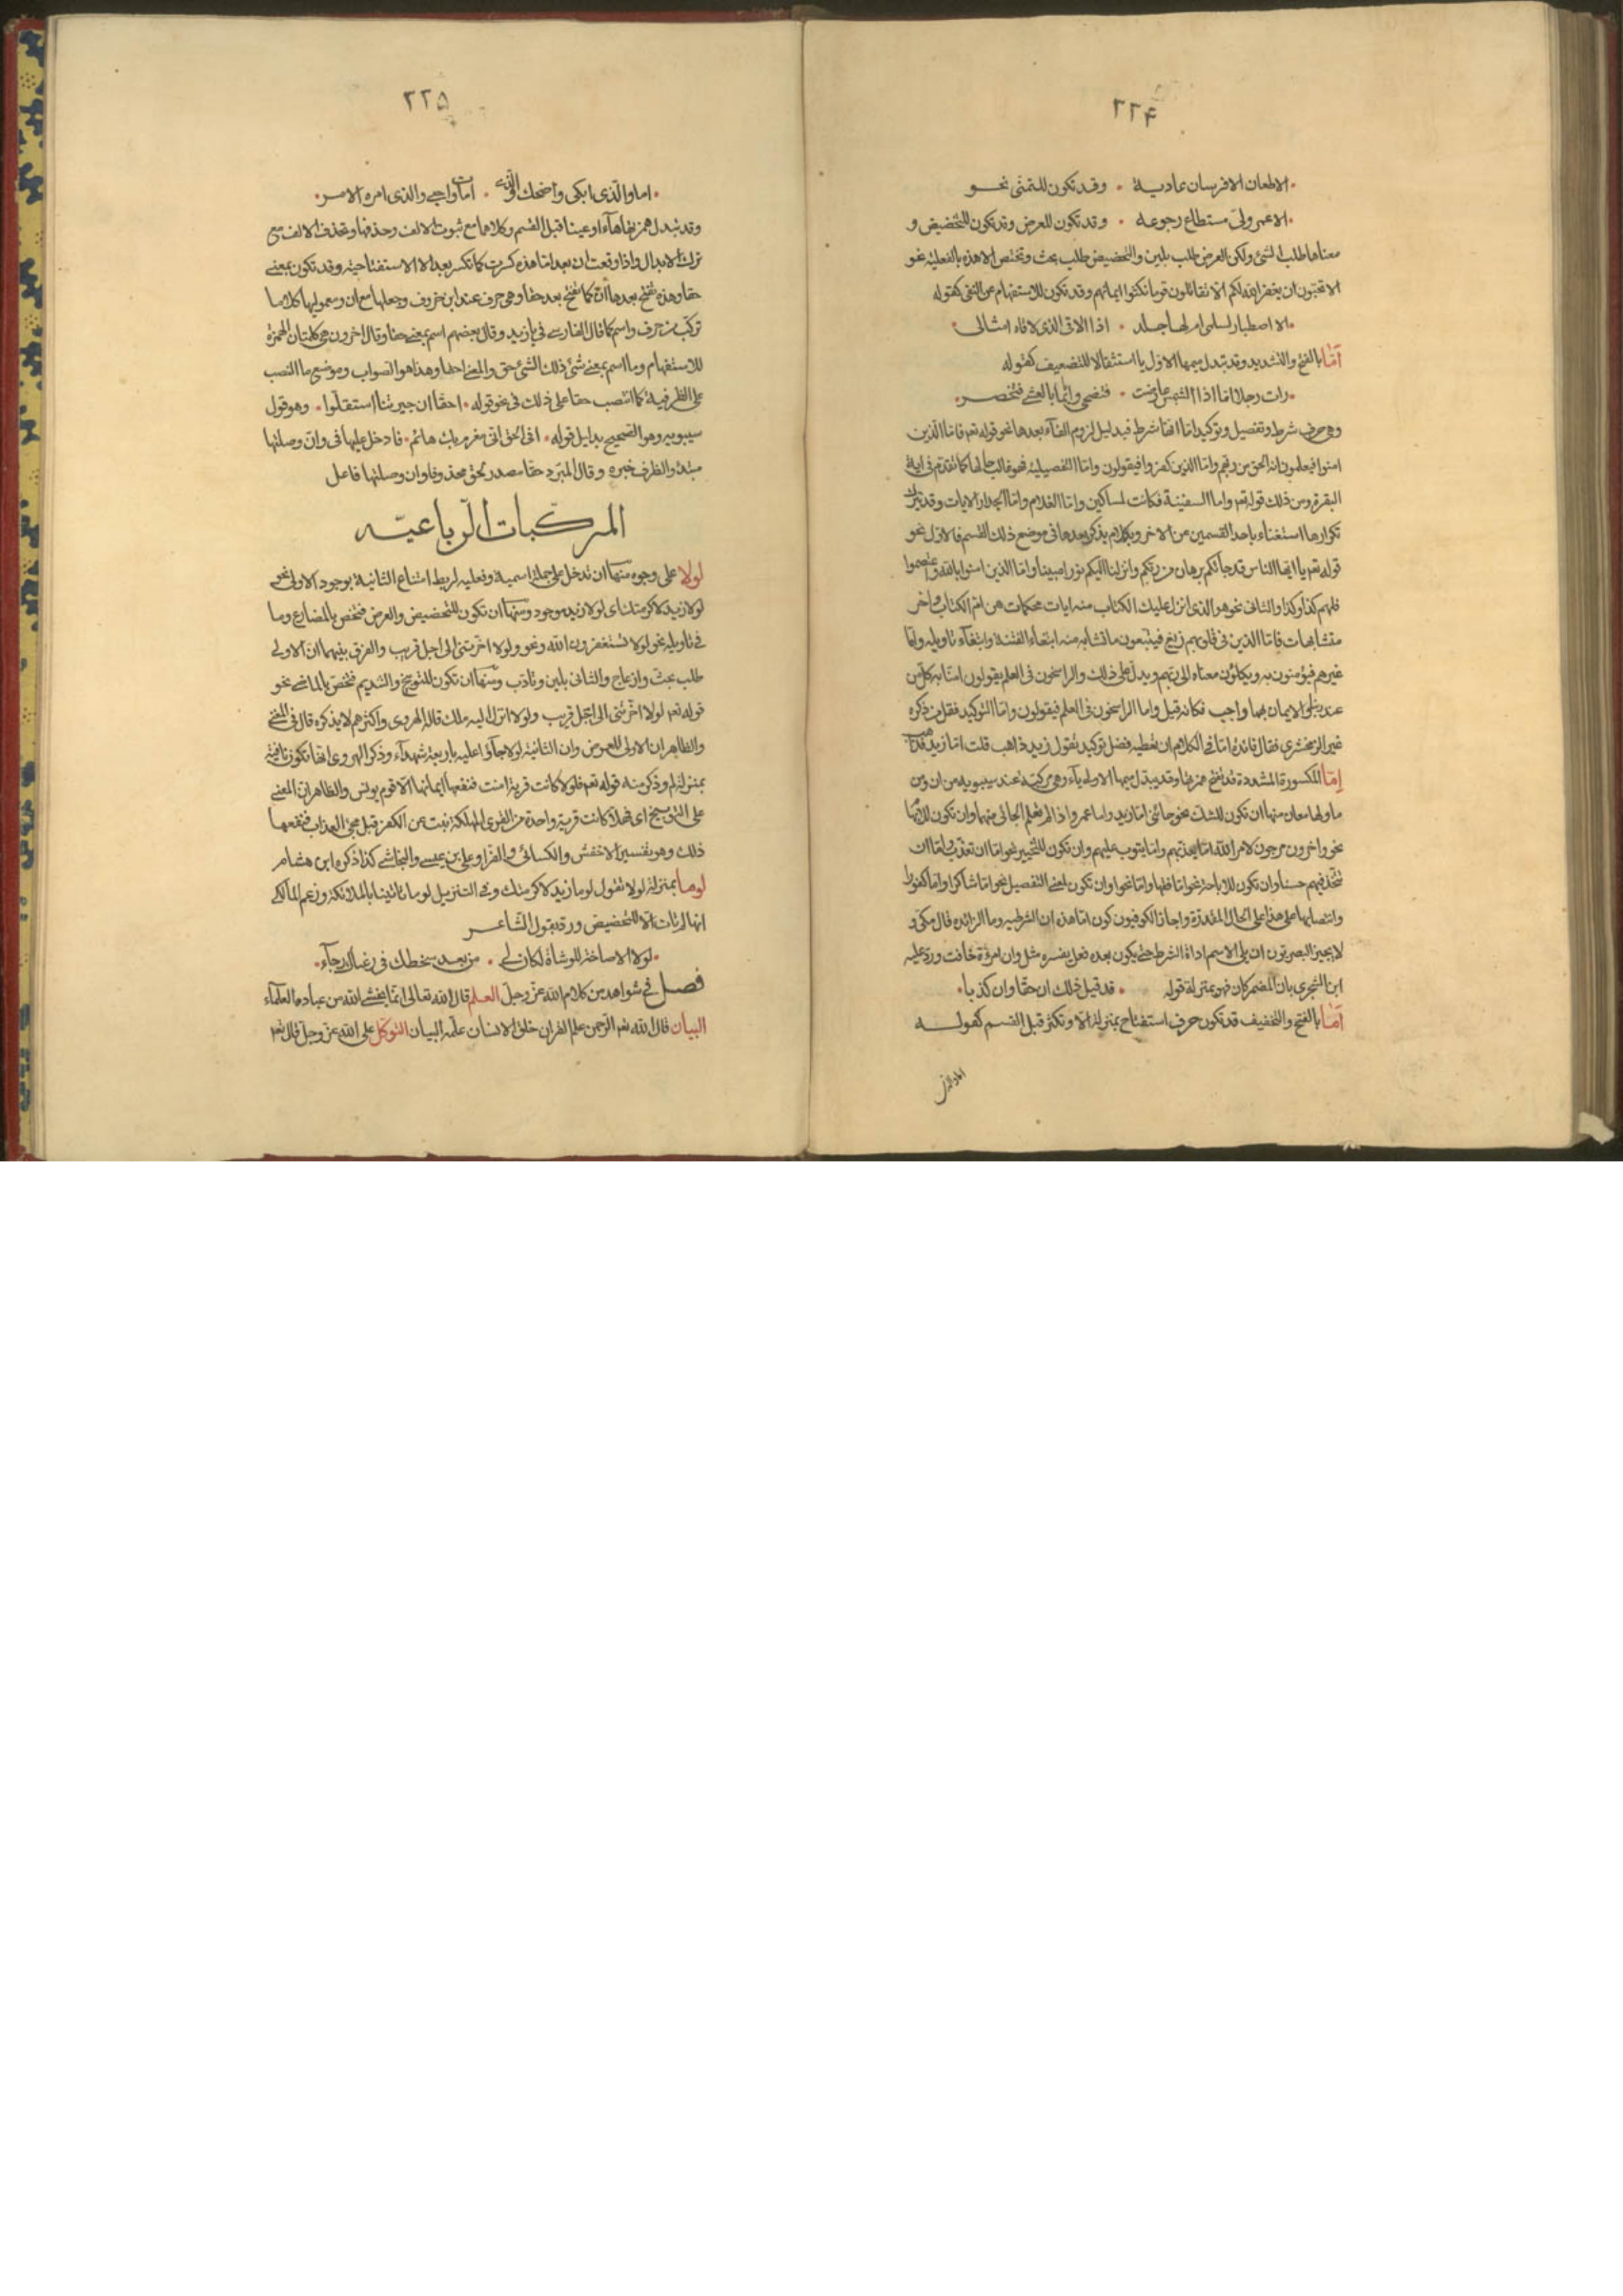 ۲۲۴
الا طعان الا فرسان عادية • وقد تكون للتمنى نحو
الا عمر ولى مستطاع رجوعه • وقد تكون للعرض وقد تكون للتحضيض و
معناهما طلب الشئ ولكن العرض طلب بلين والتحضيض طلب بحث وتختص الا هذه بالفعلية نحو
الا تحبون ان يغفر الله لكم الا تقاتلون قوما نكثوا ايمانهم وقد تكون للاستفهام عن النفى كقوله
الا اصطبار لسلمى ام لها جلد • اذا الاقى الذى لاقاه امثالى
اَمّا بالفتح والتشديد وقد تبدل ميمها الاولى يا استثقالا للتضعيف كقوله
رات رجلا اما اذا الشمس عارضت • فيضحى وايما بالعشى فيخصر
وهى حرف شرط وتفصيل وتوكيد اما انها شرط فبدليل لزوم الفآء بعدها نحو قوله تعم فاما الذين
امنوا فيعلمون انه الحق من ربهم واما الذين كفروا فيقولون واما التفصيلية فهو غالب حالها كما تقدم فى اية
البقرة ومن ذلك قوله تعم واما السفينة فكانت لمساكين واما الغلام واما الجدار الايات وقد يترك
تكرارها استغناء باحد القسمين عن الاخر وبكلام يذكر بعدها فى موضع ذلك القسم فالاول نحو
قوله تعم يا ايها الناس قد جائكم برهان من ربكم وانزلنا اليكم نورا مبينا واما الذين امنوا بالله واعتصموا
فلهم كذا وكذا والثانى نحو هو الذى انزل عليك الكتاب منه ايات محكمات هن ام الكتاب واخر
متشابهات فاما الذين فى قلوبهم زيغ فيتبعون ما تشابه منه ابتغاء الفتنة وابتغآء تاويله واما
غيرهم فيؤمنون به ويكلون معناه الى ربهم ويدل على ذلك والراسخون فى العلم يقولون امنا به كل من
عند ربنا الايمان بهما واجب فكانه قيل واما الراسخون فى العلم فيقولون واما التوكيد فقل من ذكره
غير الزمخشرى فقال فائدة اما فى الكلام ان تعطيه فضل توكيد تقول زيد ذاهب قلت اما زيد فذاهب
اِمّا المكسورة المشددة قد تفتح همزتها وقد يبدل ميمها الاولى يآء وهى مركبة عند سيبويه من ان ومن
ما ولها معان منها ان تكون للشك نحو جائنى اما زيد واما عمرو اذا لم تعلم الجائى منهما وان تكون للابهام
نحو واخرون مرجون لامر الله اما يعذبهم واما يتوب عليهم وان تكون للتخيير نحو اما ان تعذب واما ان
تتخذ فيهم حسنا وان تكون للاباحة نحو اما فقها واما نحوا وان تكون لمعنى التفصيل نحو اما شاكرا واما كفورا
وانتصابهما على هذا على الحال المقدرة واجاز الكوفيون كون اما هذه ان الشرطية وما الزائده قال مكى و
لا يجيز البصريون ان يلى الاسم اداة الشرط حتى يكون بعده فعل يفسره مثل وان امرئة خافت ورد عليه
ابن الشجرى بان المضمر كان فهو بمنزلة قوله • قد قيل ذلك ان حقا وان كذبا
اَمَا بالفتح والتخفيف قد تكون حرف استفتاح بمنزلة الا وتكثر قبل القسم كقوله
اما والذى
۲۲۵
اما والذى ابكى واضحك والذى • امات واحيى والذى امره الامر
وقد تبدل همزتها هآء او عينا قبل القسم وكلاهما مع ثبوت الالف وحذفها وتحذف الالف مع
ترك الابدال واذا وقعت ان بعد اما هذه كسرت كما تكسر بعد الا الاستفتاحية وقد تكون بمعنى
حقا وهذه تفتح بعدها ان كما تفتح بعد حقا وهى حرف عند ابن خروف وجعلها مع ان ومعموليها كلاما
تركب من حرف واسم كما قال الفارسى فى يا زيد وقال بعضهم اسم بمعنى حقا وقال اخرون هى كلمتان الهمزة
للاستفهام وما اسم بمعنى شئ ذلك الشئ حق والمعنى احقا وهذا هو الصواب وموضع ما النصب
على الظرفية كما انتصب حقا على ذلك فى نحو قوله • احقا ان جيرتنا استقلوا • وهو قول
سيبويه وهو الصحيح بدليل قوله • افى الحق انى مغرم بك هائم • فادخل عليها فى وان وصلتها
مبتدء والظرف خبره وقال المبرد حقا مصدر لحق محذوفا وان وصلتها فاعل
المركّبات الرّباعيّه
لولا على وجوه منها ان تدخل على جملة اسمية وفعلية لربط امتناع الثانية بوجود الاولى نحو
لولا زيد لاكرمتك اى لولا زيد موجود ومنها ان تكون للتحضيض والعرض فتختص بالمضارع وما
فى تاويله نحو لولا تستغفرون الله ونحو ولولا اخرتنى الى اجل قريب والفرق بينهما ان الاولى
طلب بحث وازعاج والثانى بلين وتاذب ومنها ان تكون للتوبيخ والتنديم فتختص بالماضى نحو
قوله تعم لولا اخرتنى الى اجل قريب ولولا انزل اليه ملك قاله الهروى واكثرهم لا يذكره قال فى المغنى
والظاهر ان الاولى للعرض وان الثانية لولا جآؤا عليه باربعة شهدآء وذكر الهروى انها تكون نافية
بمنزلة لم وذكر منه قوله تعم فلولا كانت قرية امنت فنفعها ايمانها الا قوم يونس والظاهر ان المعنى
على التوبيخ اى فهلا كانت قرية واحدة من القرى المهلكة تبت عن الكفر قبل مجئ العذاب فنفعها
ذلك وهو تفسير الاخفش والكسائى والفرا وعلى بن عيسى والنحاس كذا ذكره ابن هشام
لوما بمنزلة لولا تقول لوما زيد لاكرمتك وفى التنزيل لوما تاتينا بالملائكة وزعم المالكى
انها لم تات الا للتحضيض ورد بقول الشاعر
لولا الاصاخة للوشاة لكان لى • من بعد سخطك فى رضاك رجآء
فصل فى شواهد من كلام الله عز وجل العلم قال الله تعالى انما يخشى الله من عباده العلمآء
البيان قال الله تعم الرحمن علم القران خلق الانسان علمه البيان التوكل على الله عز وجل قال تعم